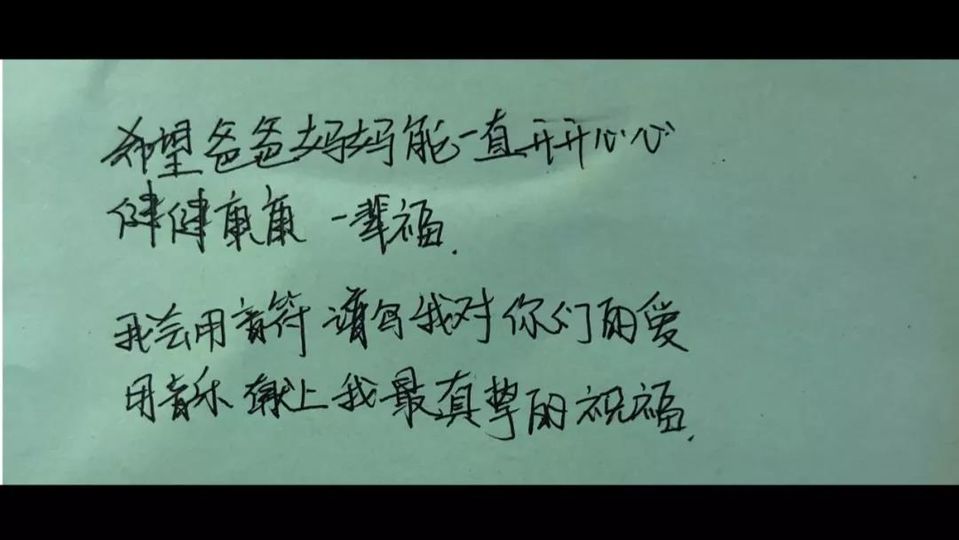 希望爸爸妈妈能一直开开心心
健健康康 一辈福.
我会用音符谱写我对你们的爱
用音乐献上我最真挚的祝福.